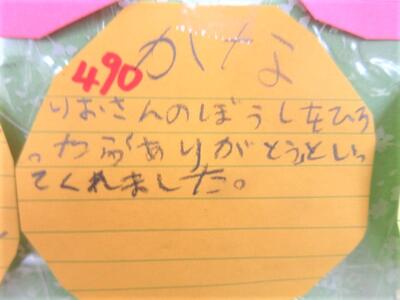 かな
490
りおさんのぼうしをひろ
。わら「ありがとう」といっ
てくれました。